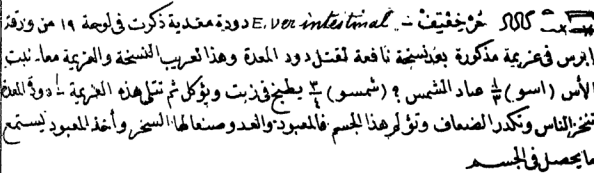 خرخفيف - E. ver intestinal .. دودة معدية ذكرت فى لوحة ١٩ من ورقة
ابرس فى عزيمة مذكورة بعد نسخة نافعة لقتل دود المعدة وهذا تعريب النسخة والعزيمة معا .. نبت
الأس (اسو) ١/٢ عباد الشمس ? (شمسو) ٣/٤ يطبخ فى زيت ويؤكل ثم تتلى هذه العزيمة - دودة المعدة
تنخز الناس وتكدر الضعاف وتؤلم هذا الجسم فالمعبود والعدو صنعا لها السحر وأخذ المعبود يستمع
ما يحصل فى الجسم